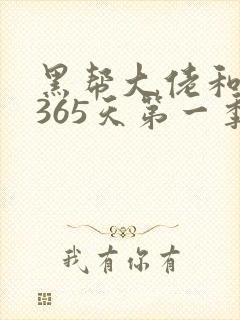 黑帮大佬和
365天第一季
我有你有